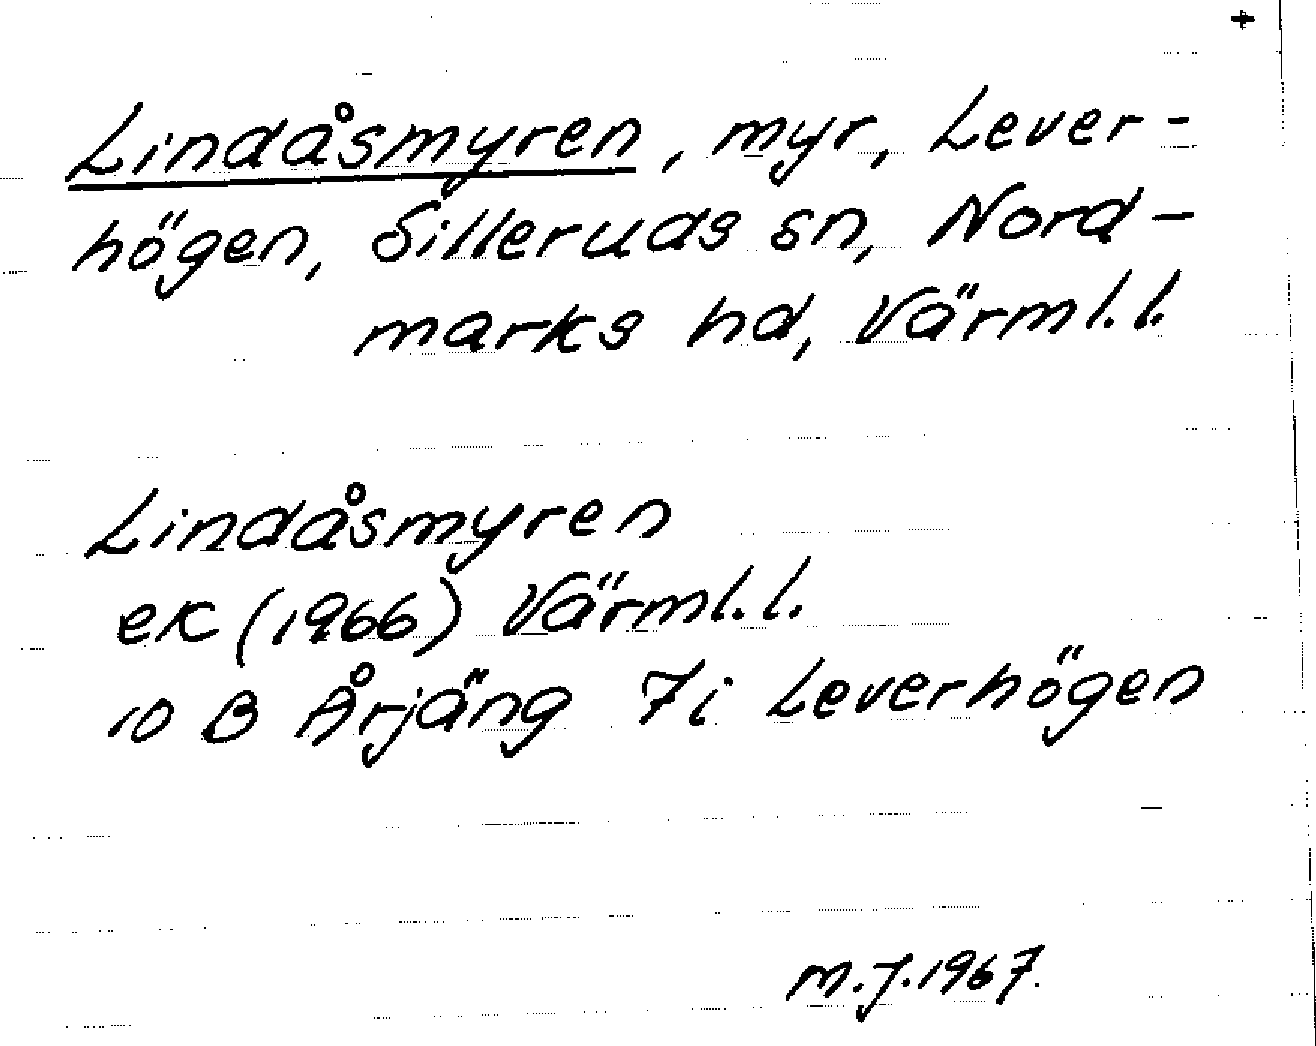 +
Lindåsmyren, myr, Lever-
högen, Silleruds sn, Nord-
marks hd, Värml.l.
Lindåsmyren
ek (1966) Värml.l.
10 B Årjäng 7i Leverhögen
M.J.1967.